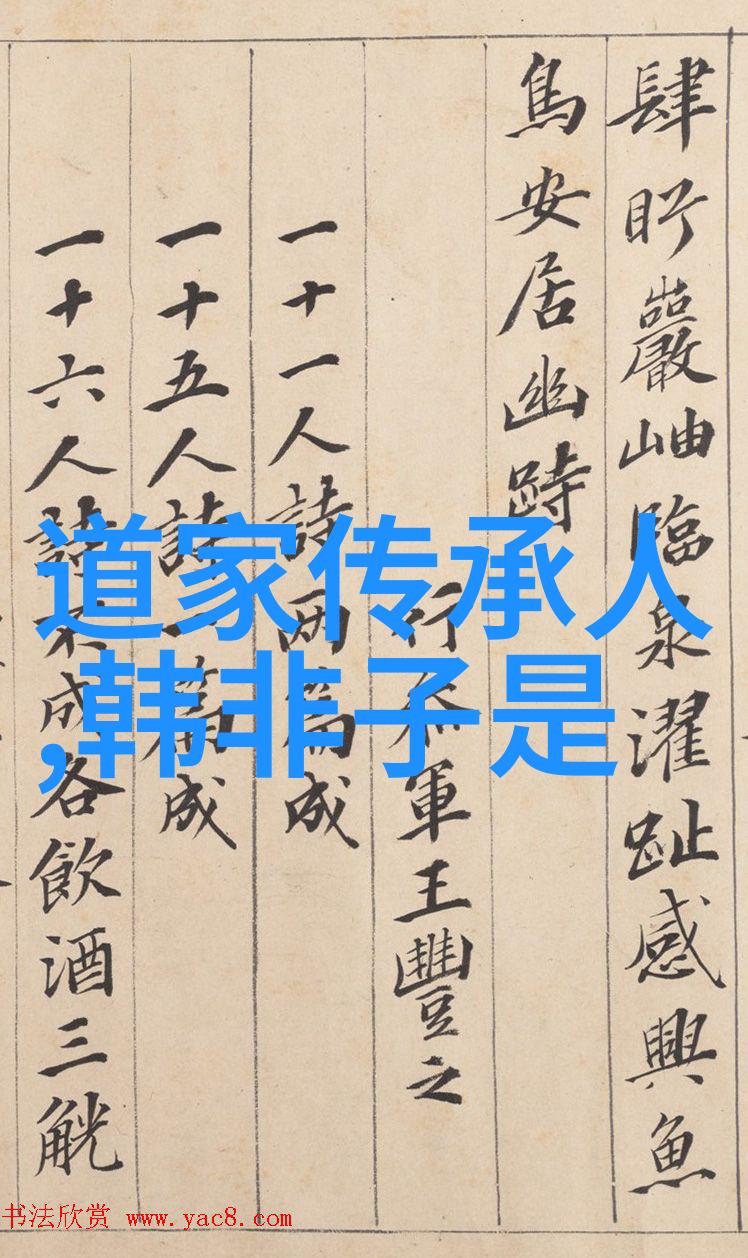 肆盻巖岫臨泉濯趾感興魚
鳥安居幽跱
行參軍王豐之
一十一人詩兩篇成
一十五人詩一篇成
一十六人詩不成各飲酒三觥
道家传承人
,韩非子是
书法欣赏 www.yac8.com